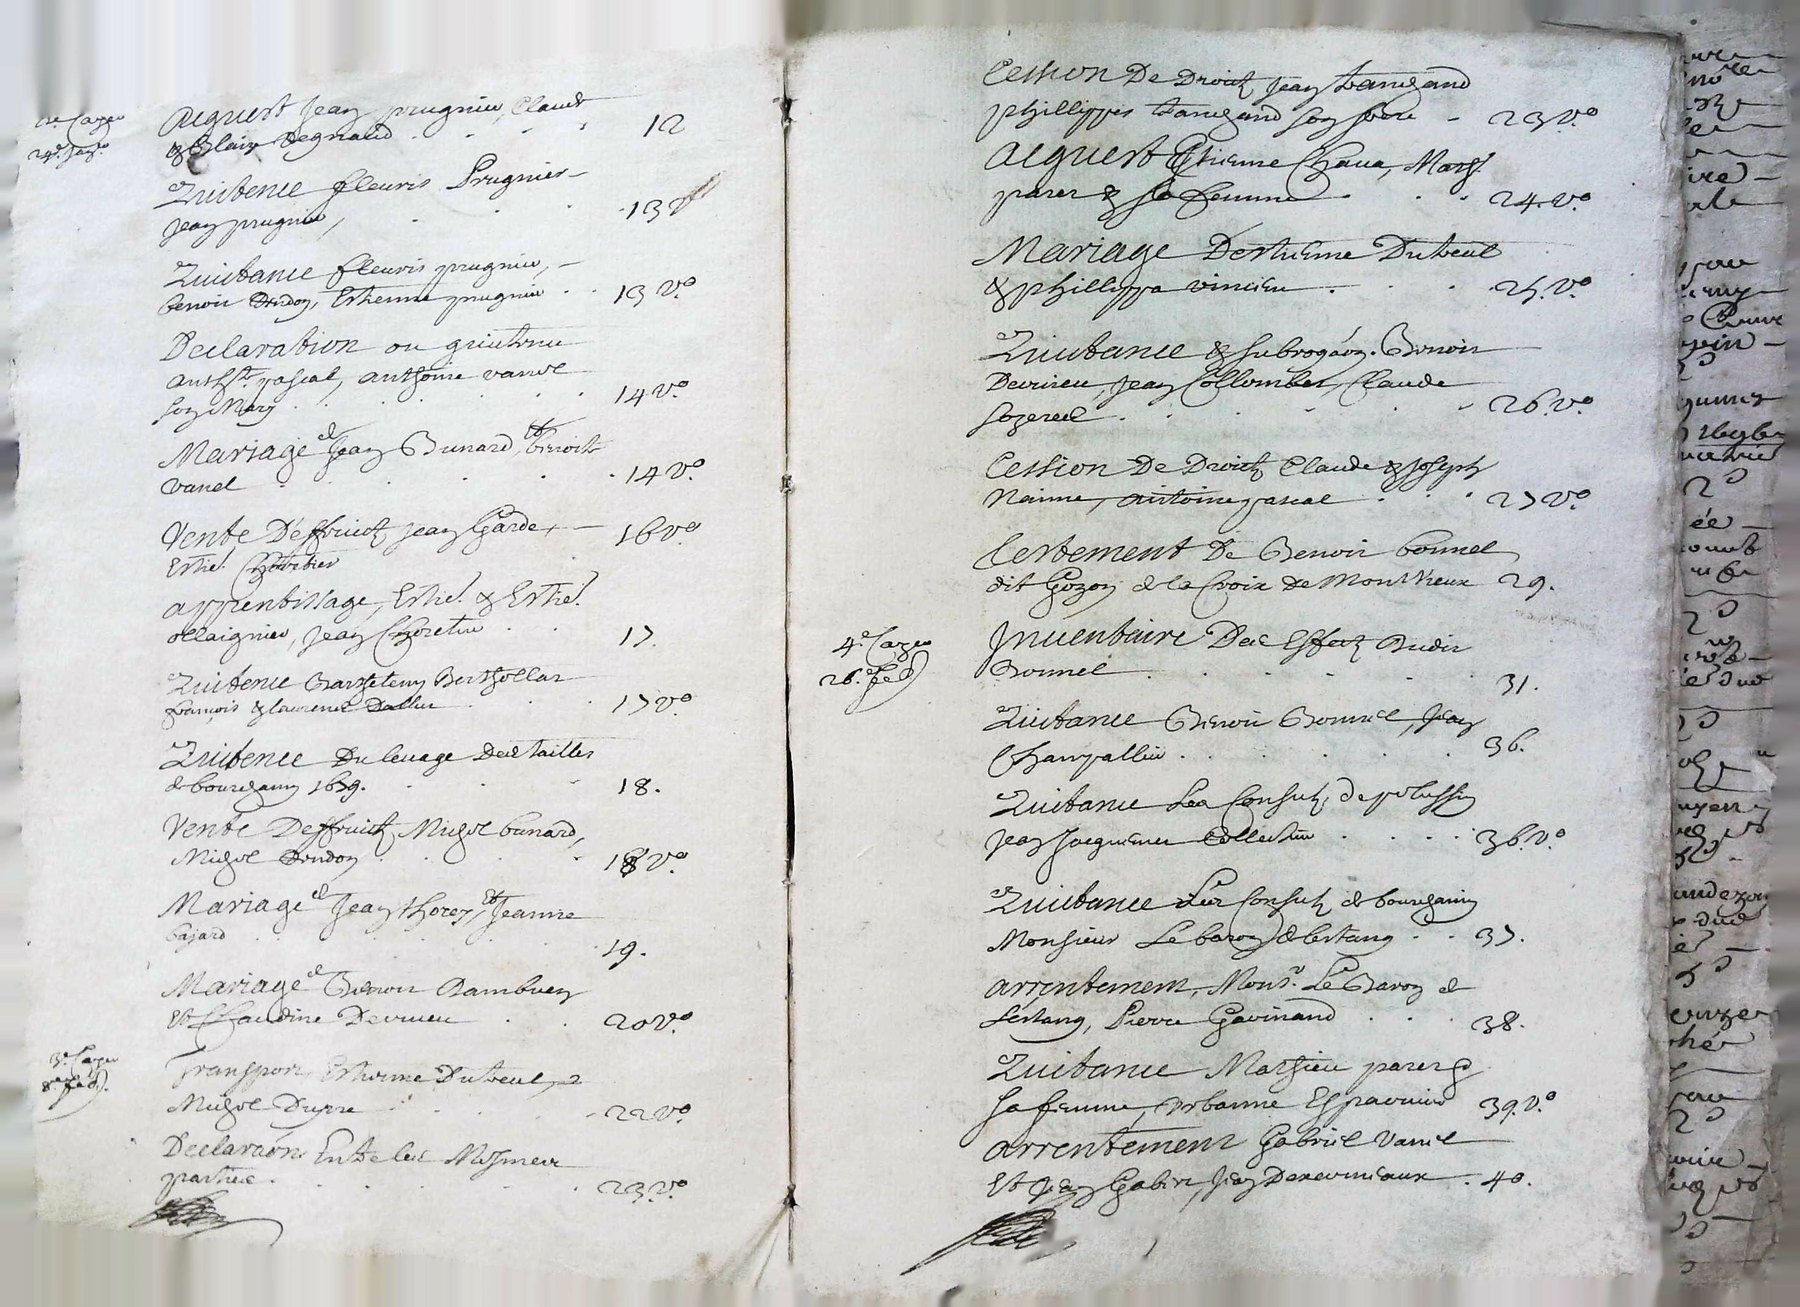 Acquest Jean prugnier, Claude
& Blaise Regnaud . . . . 12
24e. Janv.
Quitence fleuris Prugnier
Jean prugnier, . . . 13
Quitance fleuris prugnier,
benoit Oridon, Estienne prugnier . . 13 v°.
Declaration ou quitence
Anthte. pascal, Anthoine vanel
son Mary . . . . . . 14 v°.
Mariage d Jean Bunard, et benoite
vanel . . . . . . 14 v°.
Vente Deffruictz Jean Garde,
Estie. 16 v°
apprentissage, Estie. & Estie.
ollaignier, Jean Choretier . . 17.
Quitence Barthelemy Berthollat
francois & laurence Dallier . . . 17 v°.
Quitence Du levage Des tailles
de bourgany 1659. . . . 18.
Vente Deffruictz, Michel bunard,
Michel Oridon . . . . 18 v°.
Mariage d Jean thorez, et Jeanne
bajard . . . . . . 19.
Mariage d Benoit Chambuer
Et Claudine Devrieu . . 20 v°.
3e. Cayer
Transport Estienne Duteul,
Michel Dupre . . . . 22 v°.
Declaraón Entre les Mesmes
parties. . . . . . 23 v°.
Cession De Droictz Jean tamegand
phillippes tamegand son frere - 23 v°.
Acquest Etienne Chava, Marg.
parer & sa femme . . . 24. v°.
Mariage D'estienne Duteul
& phillippa vincieu . . . 25. v°.
Quitance & subrogaón. Benoit
Devrieu, Jean Collombet, Claude
Lozereil . . . . . . 26. v°.
Cession De Droictz Claude & Joseph
Nainne, antoine pascal . . . 27 v°.
Testement De Benoit bonnel
dit Gozon de la Croix de Montvieux 29.
4e. Cayer
Inventaire Des Effectz Dudit
Bonnel . . . . . . 31.
Quitance Benoit Bonnel, Jean
Champallier . . . . . 36.
Quitance Les Consulz de pelussin
Jean Jacquemet Collecteur . . . . 36. v°.
Quitance Les Consulz de bourgany
Monsieur Le baron de lestang . . 37.
arrentement, Monsr. Le Baron de
Lestang, Pierre Gavinand . . . 38.
Quitance Mathieu parer &
sa femme, urbanne Espaonier 39. v°.
arrentement Gabriel vanel
Et Jean Gabirt, Jean Desevinieaux . 40.